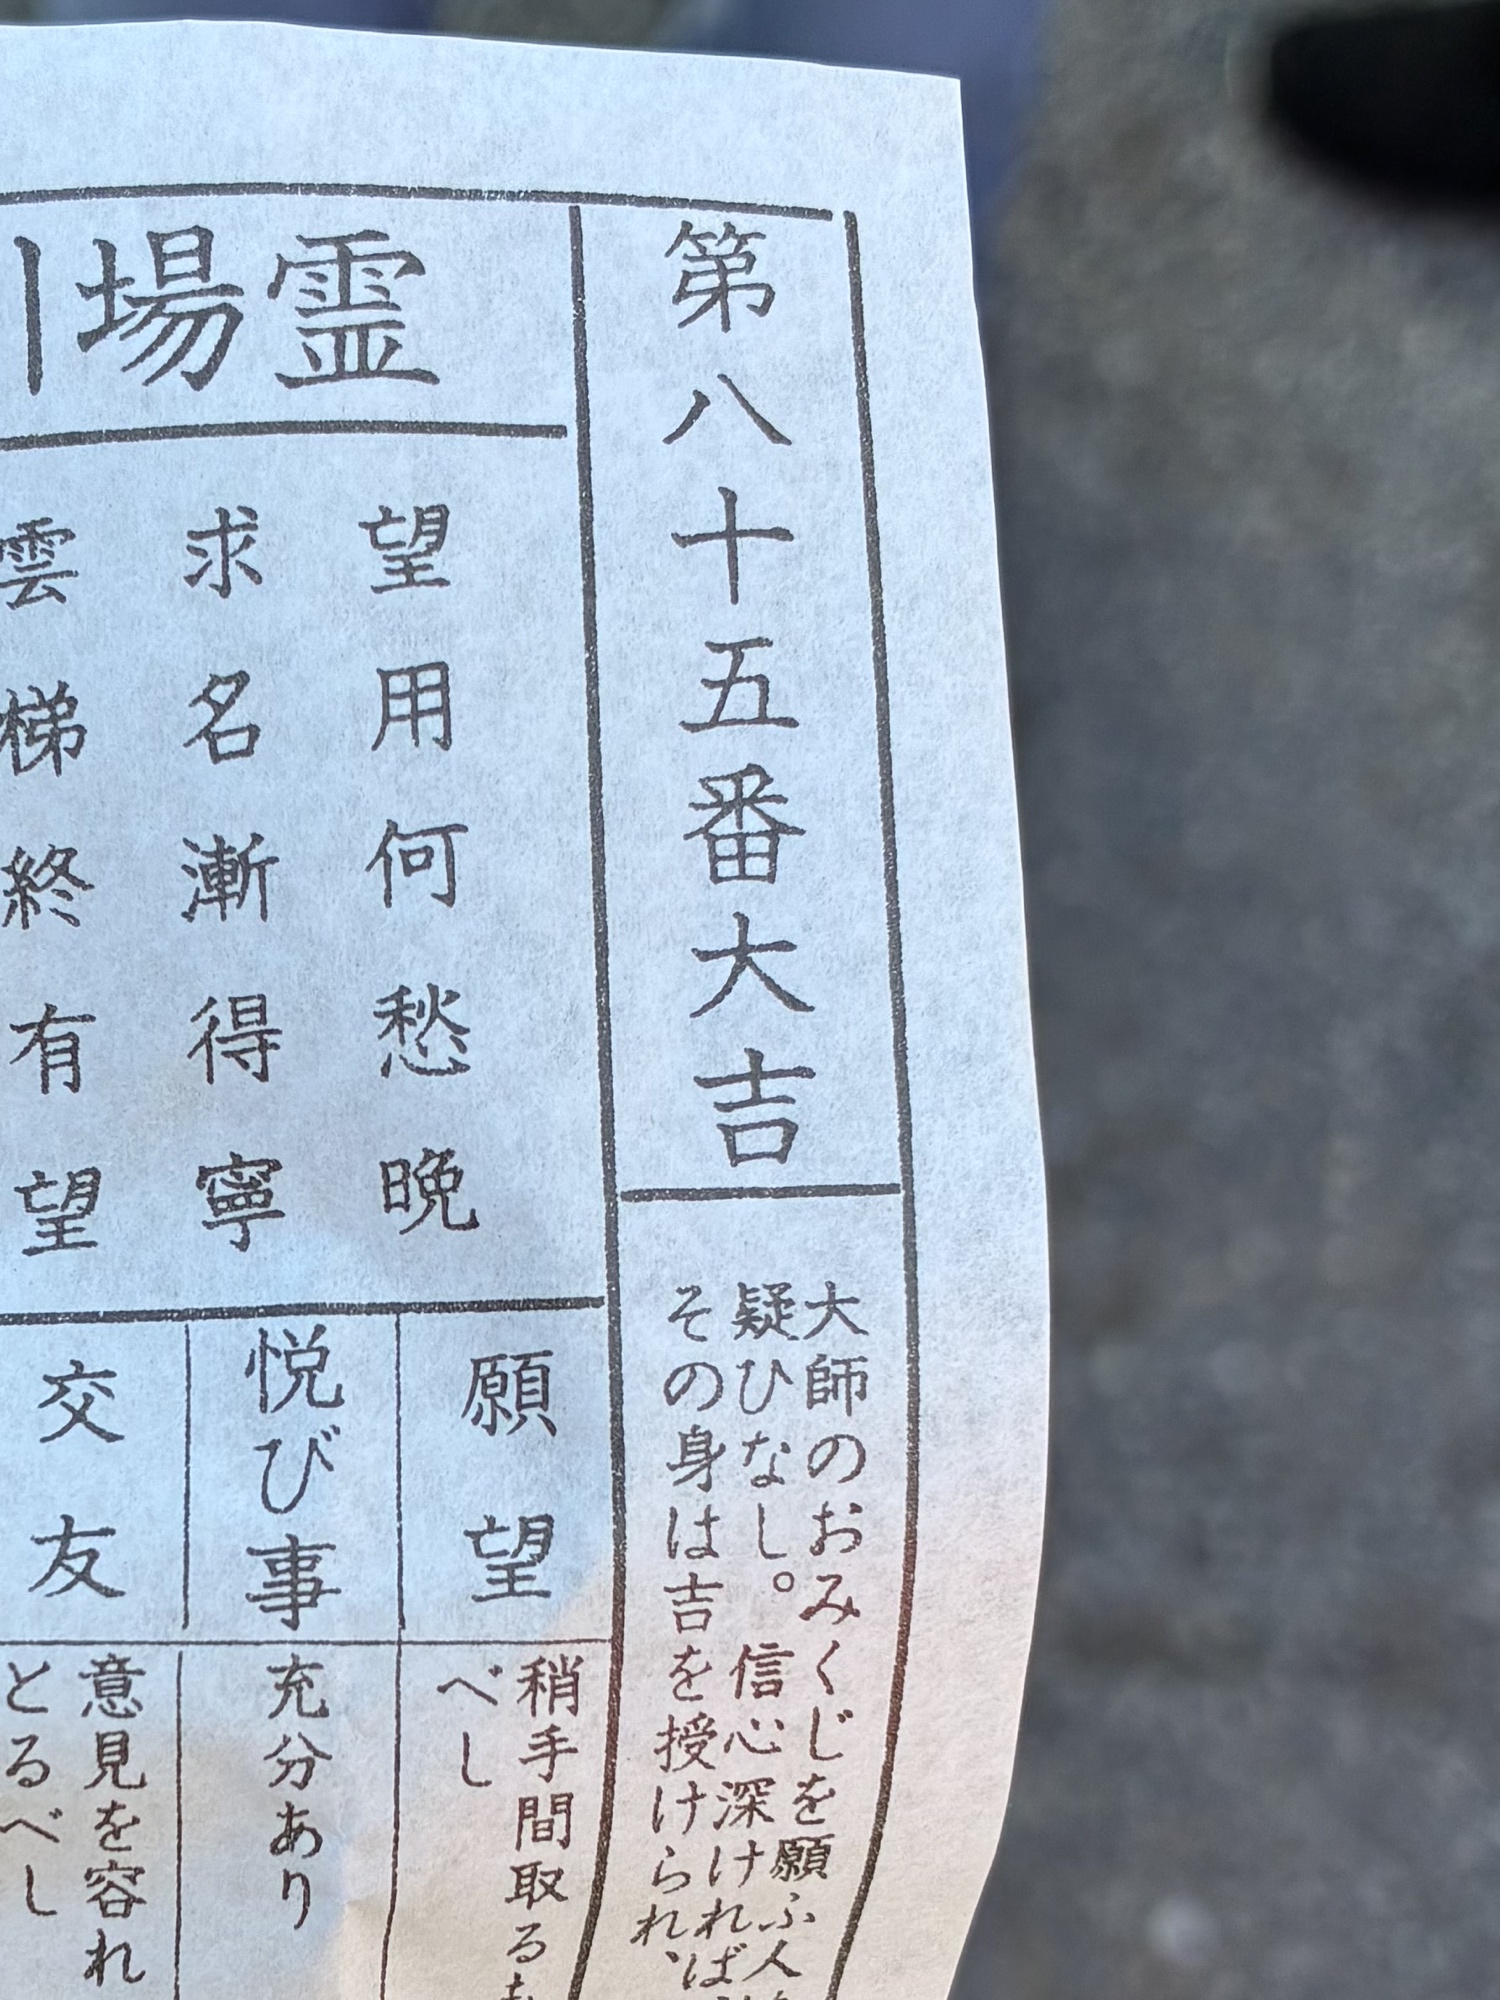 第八十五番大吉
大師のおみくじを願ふ人
疑ひなし。信心深ければ
その身は吉を授けられ、
霊場
望用何愁晩
求名漸得寧
雲梯終有望
願望
稍手間取る
べし
悦び事
充分あり
交友
意見を容れ
とるべし